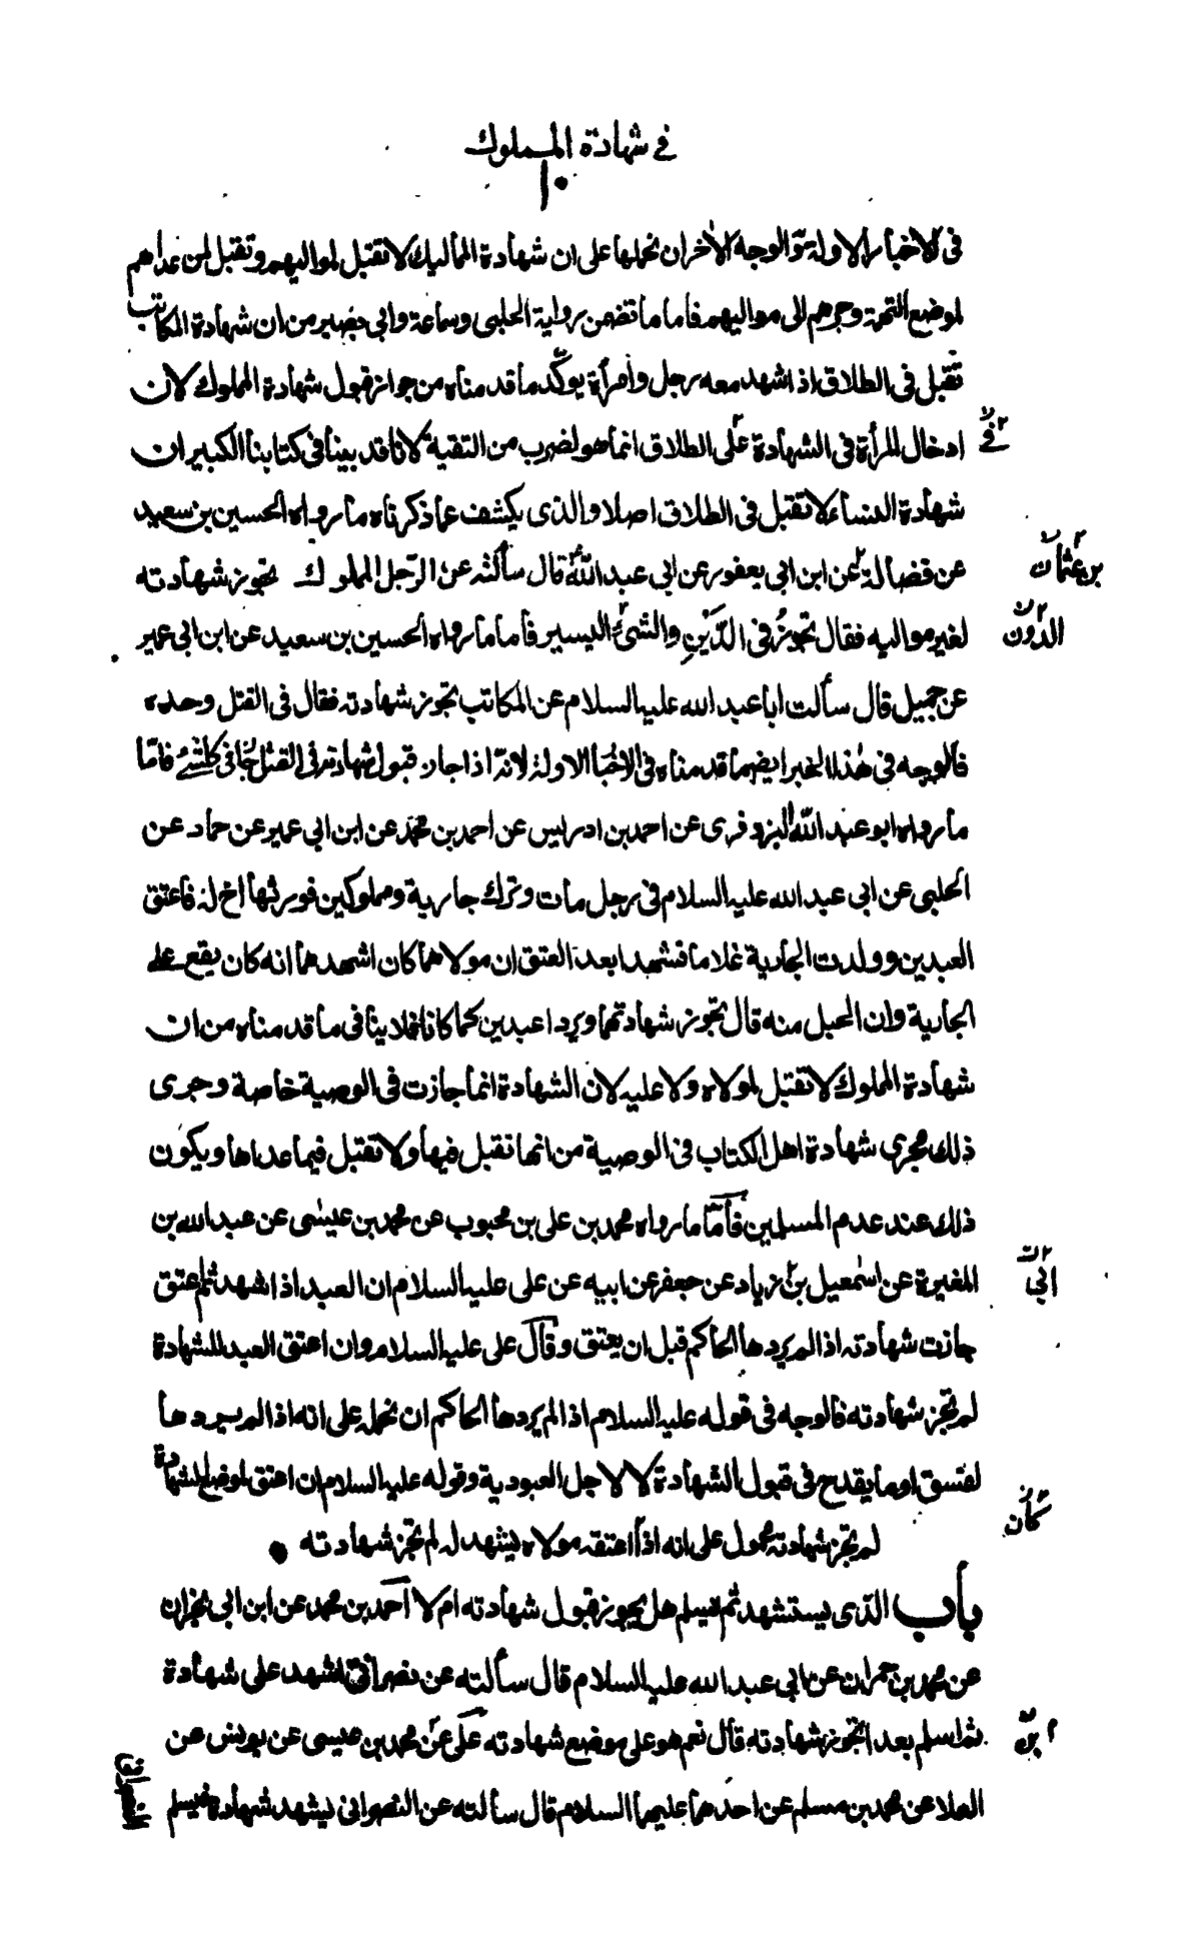 في شهادة المملوك
١٠
فى الاخبار الاولة والوجه الاخر ان نحملها على ان شهادة المماليك لا تقبل لمواليهم وتقبل لمن عداهم
لموضع التهمة وجرهم الى مواليهم فاما ما تضمن رواية الحلبى وسماعة وابي بصير من ان شهادة المكاتب
تقبل فى الطلاق اذا شهد معه رجل وامرأة يؤكّد ما قدمناه من جواز قبول شهادة المملوك لان
ادخال المرأة فى الشهادة على الطلاق انما هو لضرب من التقية لانا قد بينا فى كتابنا الكبير ان
في
شهادة النساء لا تقبل فى الطلاق اصلا والذى يكشف عما ذكرناه ما رواه الحسين بن سعيد
عن فضالة عن ابن ابي يعفور عن ابي عبد الله قال سألته عن الرّجل المملوك تجوز شهادته
بن عثمان
لغير مواليه فقال تجوزُ فى الدَّيْنِ والشئ اليسير فأما ما رواه الحسين بن سعيد عن ابن ابى عمير
الدون
عن جميل قال سألت ابا عبد الله عليه السلام عن المكاتب تجوز شهادته فقال فى القتل وحده
فالوجه فى هذا الخبر ايضا ما قدمناه فى الاخبار الاولة لانّه اذا جاز قبول شهادته فى القتل جاز فى كلشئ فامّا
ما رواه ابو عبد الله البزوفرى عن احمد بن ادريس عن احمد بن محمّد عن ابن ابي عمير عن حماد عن
الحلبى عن ابى عبد الله عليه السلام فى رجل مات وترك جارية ومملوكين فورثها اخ له فاعتق
العبدين وولدت الجارية غلاما فشهدا بعد العتق ان مولاهما كان اشهدهما انه كان يقع على
الجارية وان الحبل منه قال تجوز شهادتهما ويردا عبدين كما كانا فلا ينافى ما قدمناه من ان
شهادة المملوك لا تقبل لمولاه ولا عليه لان الشهادة انما جازت فى الوصية خاصة وجرى
ذلك مجرى شهادة اهل الكتاب فى الوصية من انها تقبل فيها ولا تقبل فيما عداها ويكون
ذلك عند عدم المسلمين فأمّا ما رواه محمد بن على بن محبوب عن محمد بن عيسى عن عبد الله بن
المغيرة عن اسمعيل بن زياد عن جعفر عن ابيه عن على عليه السلام ان العبد اذا شهد ثم اعتق
ابي
جازت شهادته اذا لم يردها الحاكم قبل ان يعتق وقال على عليه السلام وان اعتق العبد للشهادة
لم تجز شهادته فالوجه فى قوله عليه السلام اذا لم يردها الحاكم ان نحمله على انه اذا لم يردها
لفسق او ما يقدح فى قبول الشهادة لا لاجل العبودية وقوله عليه السلام ان اعتق لموضع الشهادة
كان
لم تجز شهادته محمول على انه اذا اعتقه مولاه ليشهد له لم تجز شهادته
باب الذى يستشهد ثم يسلم هل يجوز قبول شهادته ام لا احمد بن محمد عن ابن ابي نجران
عن محمد بن حمران عن ابي عبد الله عليه السلام قال سألته عن نصرانى اشهد على شهادة
ثم اسلم بعد اتجوز شهادته قال نعم هو على موضع شهادته على عن محمد بن عيسى عن يونس عن
بن
العلا عن محمد بن مسلم عن احدهما عليهما السلام قال سألته عن النصرانى يشهد شهادة فيسلم